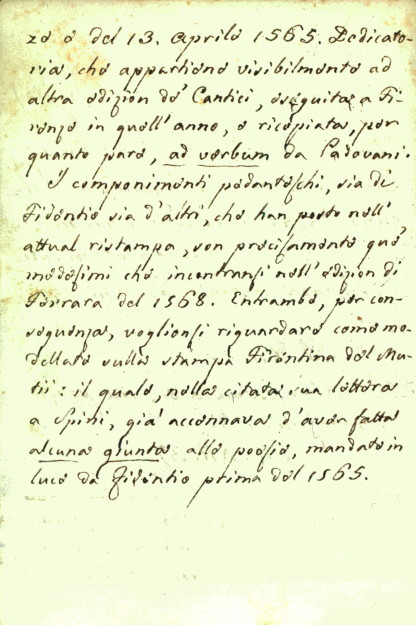 zo è del 13. Aprile 1565. Dedicato-
ria, che appartiene visibilmente ad
altra edizion de' Cantici, eseguita a Fi-
renze in quell'anno, e ricopiata, per
quanto pare, ad verbum da Padovani.
I componimenti pedanteschi, sia di
Fidentio sia d'altri, che han posto nell'
attual ristampa, son precisamente que'
medesimi che incontransi nell'edizion di
Ferrara del 1568. Entrambe, per con-
seguenza, voglionsi riguardare come mo-
dellate sulla stampa Firentina del Mu-
tii: il quale, nella citata sua lettera
a Spini, già accennava d'aver fatta
alcuna giunta alle poesie, mandate in
luce da Fidentio prima del 1565.